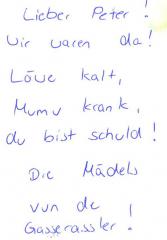 Lieber Peter!
Wir waren da!
Löwe kalt,
Mumu krank,
du bist schuld!
Die Mädels
vun de
Gasserassler!